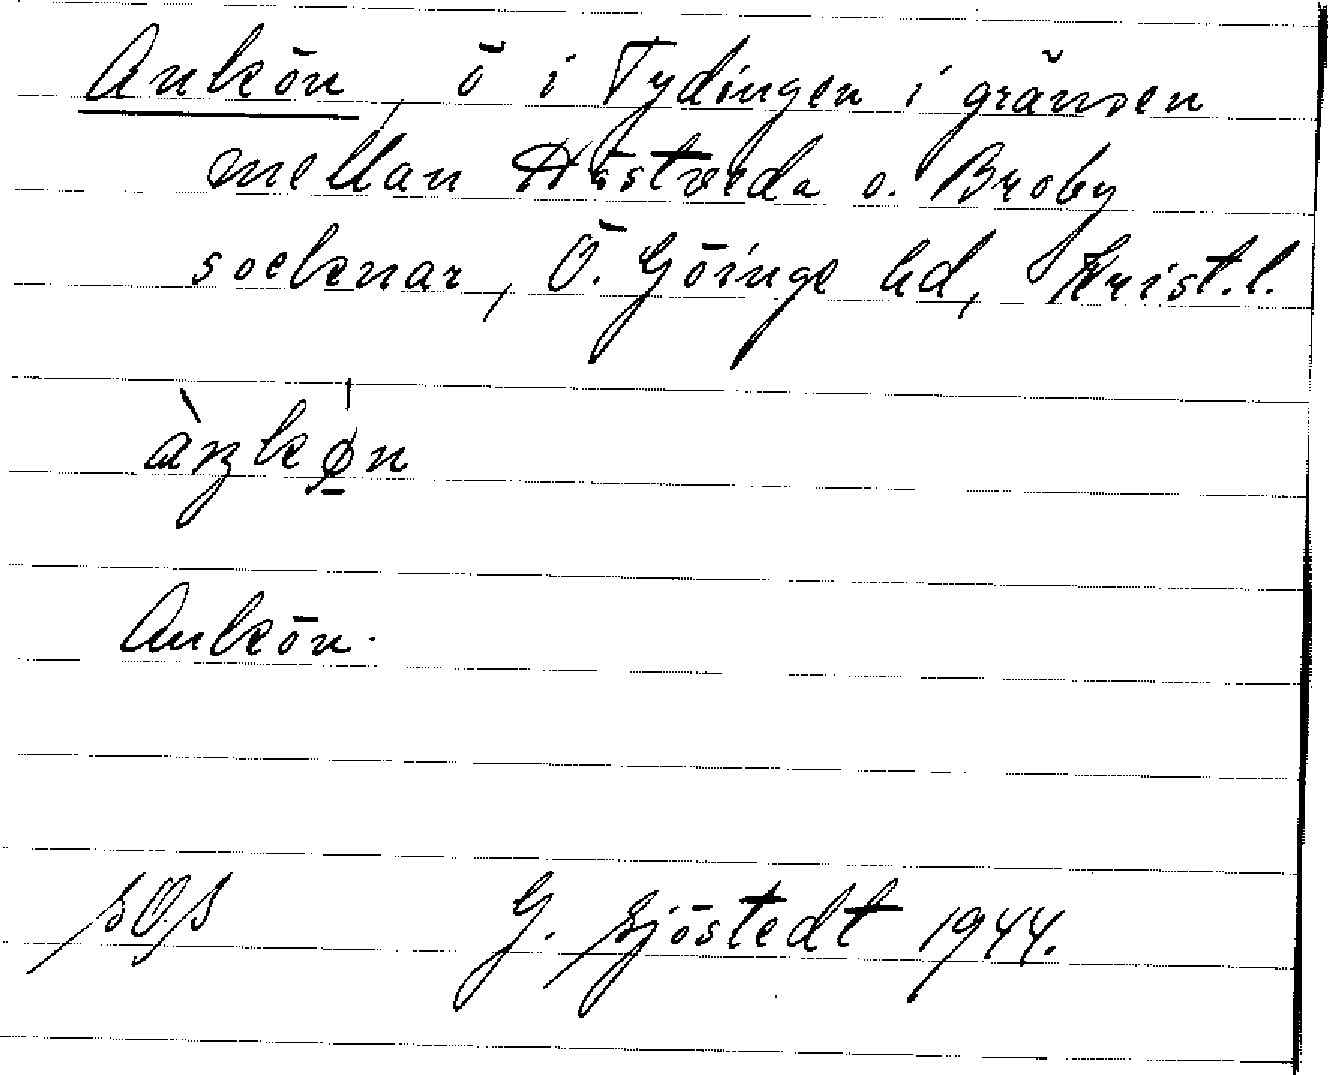 Ankön, ö i Tydingen i gränsen
mellan Hästveda o. Broby
socknar, Ö. Göinge hd, Krist. l.
àŋkø̱n
Ankön.
SOS
G. Sjöstedt 1944.